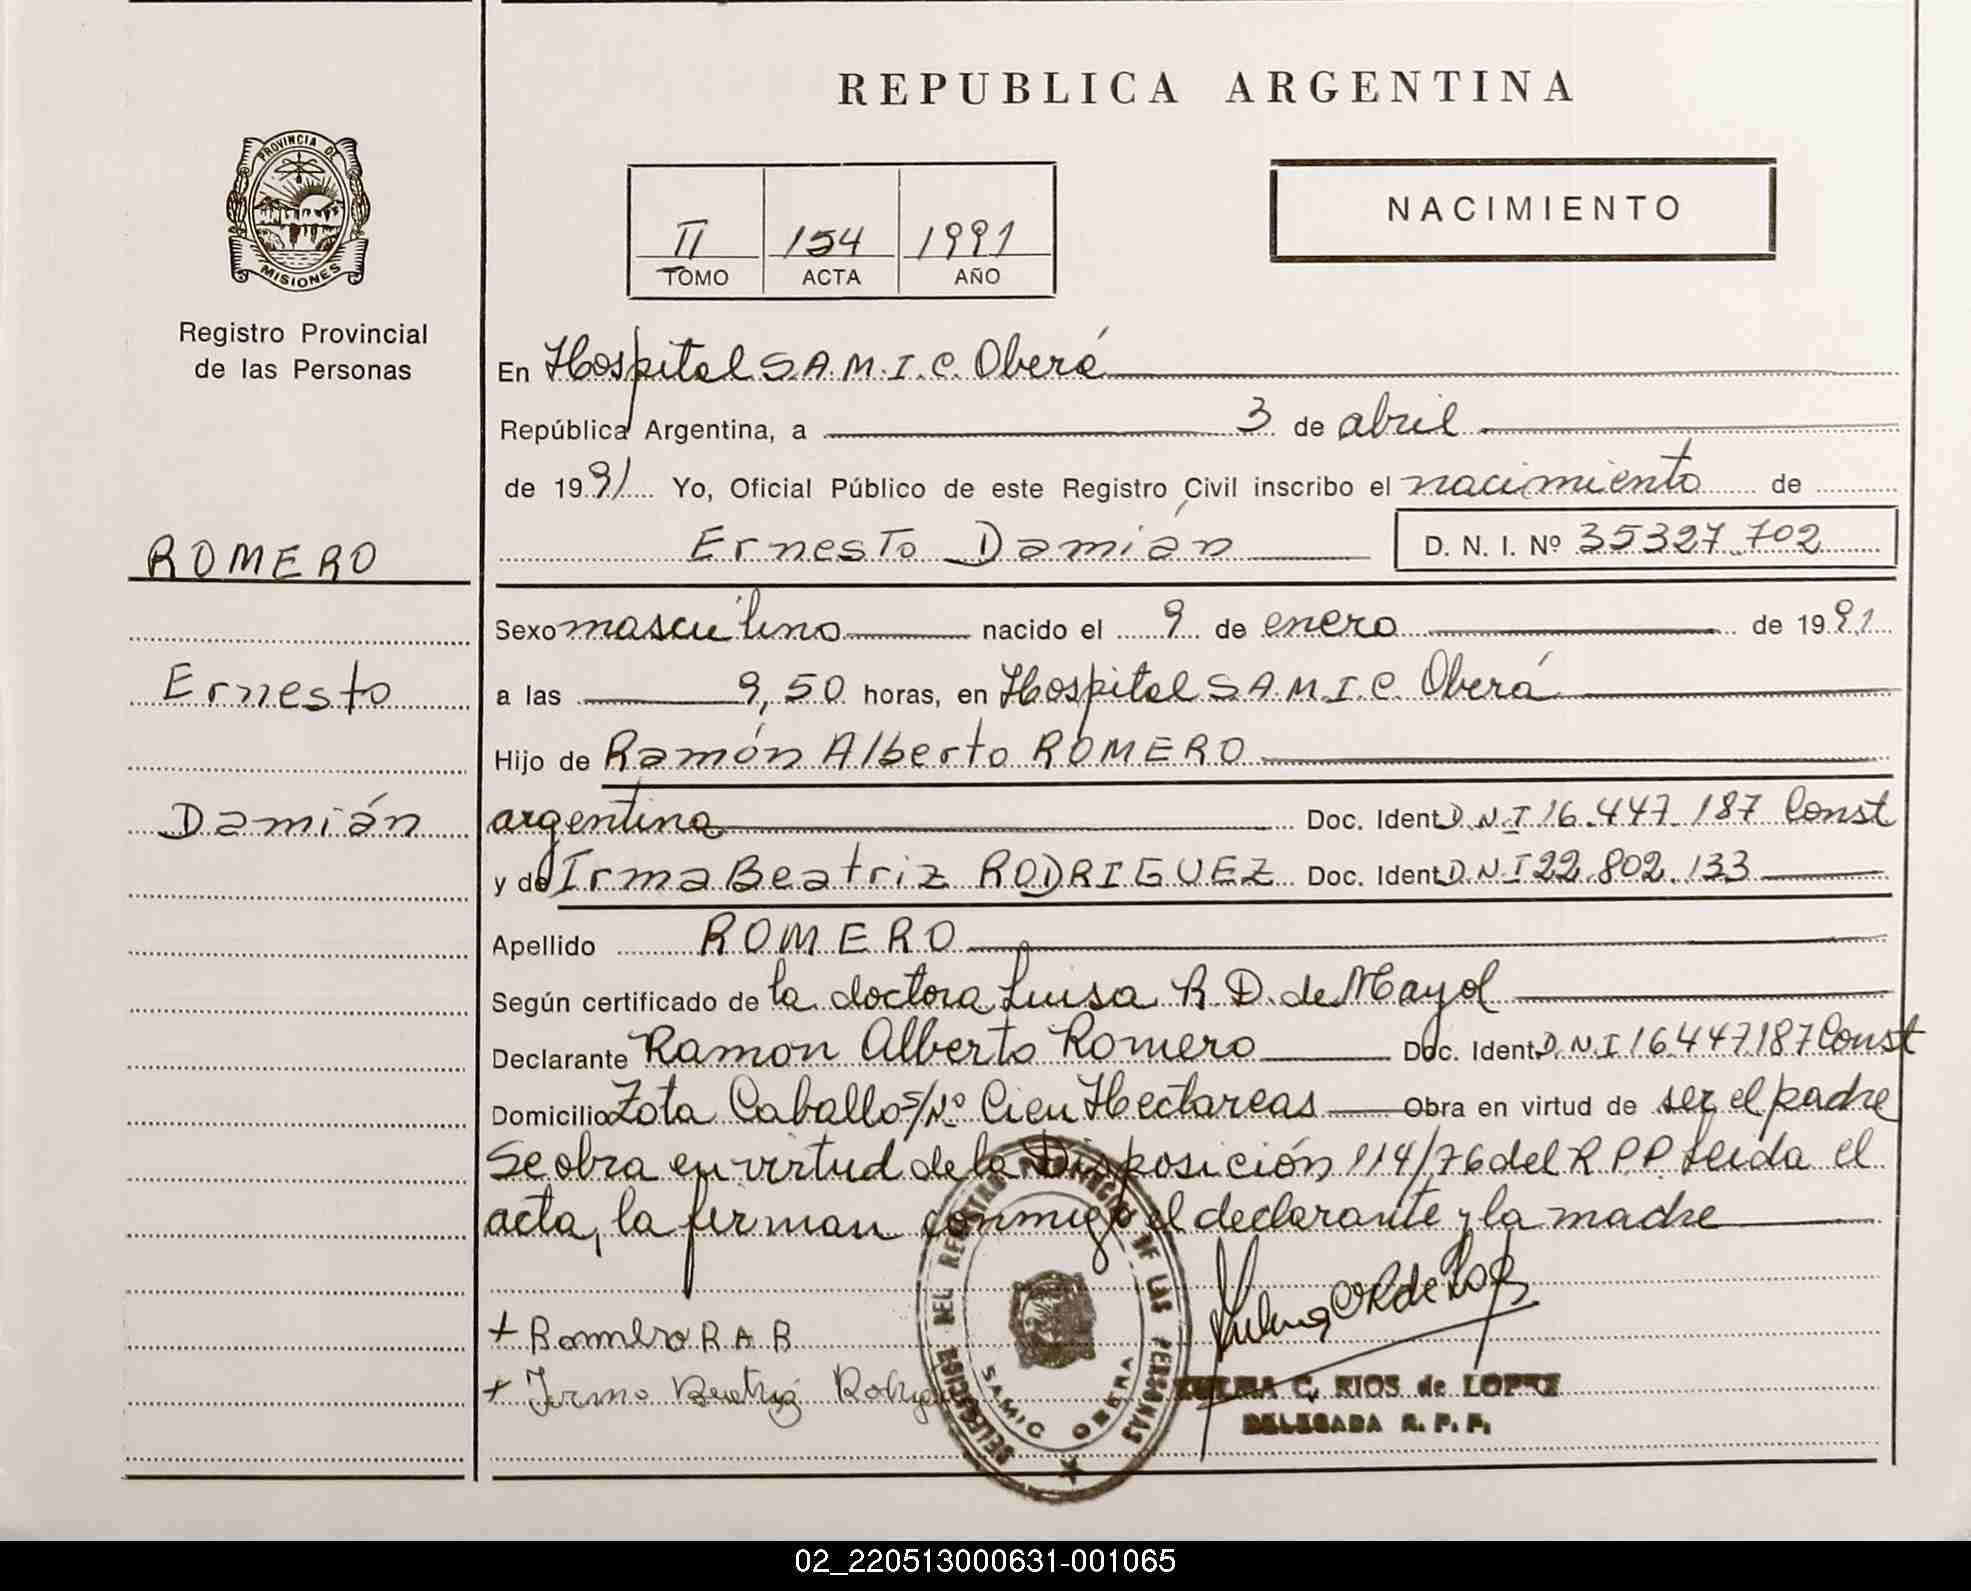 REPUBLICA ARGENTINA
PROVINCIA DE
MISIONES
Registro Provincial
de las Personas
II 154 1991
TOMO ACTA AÑO
NACIMIENTO
ROMERO
Ernesto
Damián
En Hospital S.A.M.I.C. Oberá
República Argentina, a 3 de abril
de 1991 Yo, Oficial Público de este Registro Civil inscribo el nacimiento de
Ernesto Damián D. N. I. Nº 35327.702
Sexo masculino nacido el 9 de enero de 1991
a las 9,50 horas, en Hospital S.A.M.I.C. Oberá
Hijo de Ramón Alberto ROMERO
argentina Doc. Ident D.N.I 16.447.187 Const
y de Irma Beatriz RODRIGUEZ Doc. Ident D.N.I 22.802.133
Apellido ROMERO
Según certificado de la doctora Luisa R. D. de Mayol
Declarante Ramon Alberto Romero Doc. Ident D.N.I 16.447.187 Const
Domicilio Zota Caballo S/Nº Cien Hectareas Obra en virtud de ser el padre
Se obra en virtud de la Disposición 114/76 del R P P Leida el
acta, la firman conmigo el declarante y la madre
+ Romero R A R
+ Irma Beatriz
DEL REGISTRO PROVINCIAL DE LAS PERSONAS
SAMIC OBERA
ZULMA C. RIOS de LOPEZ
DELEGADA R. P. P.
02_220513000631-001065